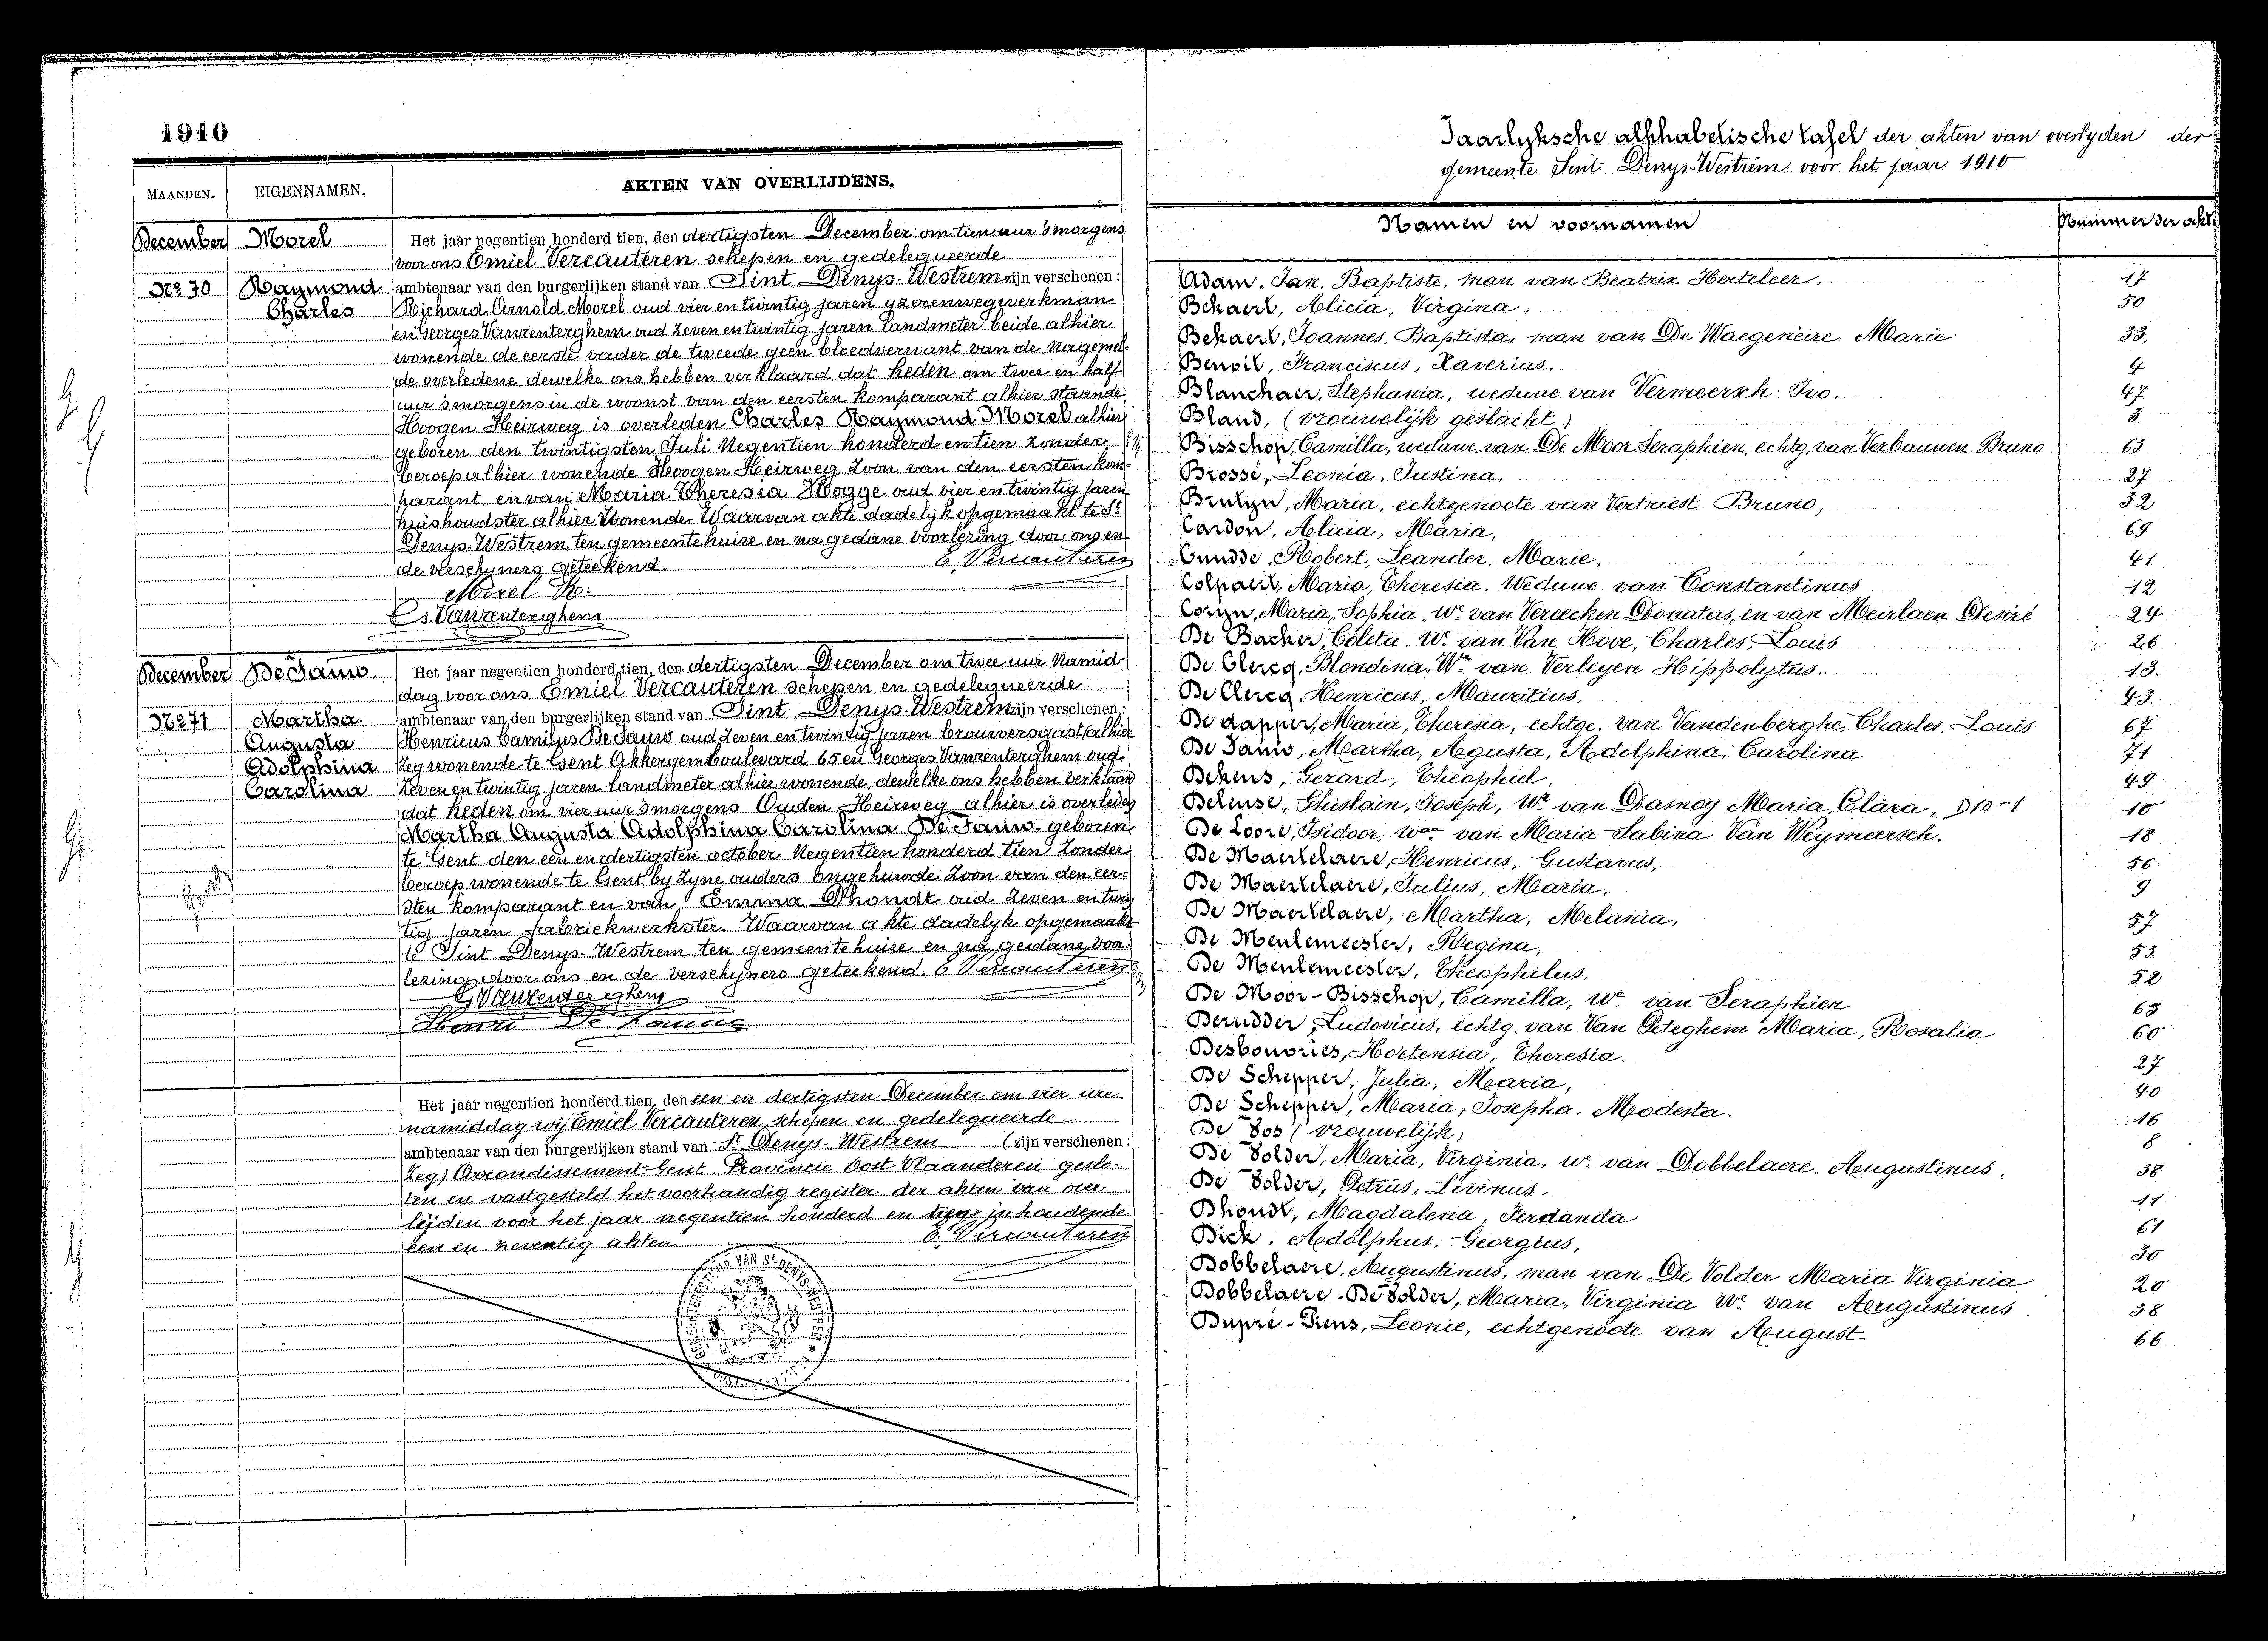 1910
MAANDEN.
EIGENNAMEN.
AKTEN VAN OVERLIJDENS.
December
Morel
No 70
Raymond
Charles
Het jaar negentien honderd tien, den dertigsten December om tien uur 's morgens
voor ons Emiel Vercauteren schepen en gedelegueerde
ambtenaar van den burgerlijken stand van Sint Denys-Westrem zijn verschenen:
Richard Arnold Morel oud vier en twintig jaren yzerenwegwerkman
en Georges Vanrenterghem oud zeven en twintig jaren landmeter beide alhier
wonende de eerste vader de tweede geen bloedverwant van de nagemel-
de overledene dewelke ons hebben verklaard dat heden om twee en half
uur 's morgens in de woonst van den eersten komparant alhier staande
Hoogen Heirweg is overleden Charles Raymond Morel alhier
geboren den twintigsten Juli negentien honderd en tien zonder
beroep alhier wonende Hoogen Heirweg zoon van den eersten kom-
parant en van Maria Theresia Hogge oud vier en twintig jaren
huishoudster alhier wonende. Waarvan akte dadelyk opgemaakt te St
Denys-Westrem ten gemeentehuize en na gedane voorlezing door ons en
de verschyners geteekend. E. Vercauteren
Morel R.
Gs. Vanrenterghem
December
De Jauw
No 71
Martha
Augusta
Adolphina
Carolina
Het jaar negentien honderd tien, den dertigsten December om twee uur namid
dag voor ons Emiel Vercauteren schepen en gedelegueerde
ambtenaar van den burgerlijken stand van Sint Denys-Westrem zijn verschenen:
Henricus Camilus De Jauw oud zeven en twintig jaren brouwersgast (alhier
zeg wonende te Gent Akkergemboulevard 65 en Georges Vanrenterghem oud
zeven en twintig jaren landmeter alhier wonende, dewelke ons hebben verklaard
dat heden om vier uur 's morgens Ouden Heirweg alhier is overleden
Martha Augusta Adolphina Carolina De Jauw geboren
te Gent den een en dertigsten october negentien honderd tien zonder
beroep wonende te Gent by zyne ouders ongehuwde zoon van den eer-
sten komparant en van Emma Dhondt oud zeven en twin
tig jaren fabriekwerkster. Waarvan akte dadelyk opgemaakt
te Sint Denys-Westrem ten gemeentehuize en na gedane voor-
lezing door ons en de verschyners geteekend. E Vercauteren
G. Vanrenterghem
Henri De Jauw
Het jaar negentien honderd tien, den een en dertigsten December om vier ure
namiddag wij Emiel Vercauteren, schepen en gedelegueerde
ambtenaar van den burgerlijken stand van St Denys-Westrem (zijn verschenen:
zeg) Arrondissement Gent, Provincie Oost Vlaanderen geslo-
ten en vastgesteld het voorhandig register der akten van over
leijden voor het jaar negentien honderd en tien inhoudende
een en zeventig akten E. Vercauteren
Jaarlyksche alphabetische tafel der akten van overlyden der
gemeente Sint Denys-Westrem voor het jaar 1910
Namen en voornamen
Nummer der akte
Adam, Jan, Baptiste, man van Beatrix Herteleer. 17
Bekaert, Alicia, Virgina, 50
Bekaert, Joannes, Baptista, man van De Waegeneire Marie 33.
Benoit, Franciscus, Xaverius, 4
Blanchaer, Stephania, weduwe van Vermeersch Ivo. 47
Bland, (vrouwelijk geslacht) 3.
Bisschop, Camilla, weduwe van De Moor Seraphien, echtg. van Verbauwen Bruno 63
Brossé, Leonia, Justina, 27
Brulyn, Maria, echtgenoote van Vertriest Bruno, 32
Cardon, Alicia, Maria, 69
Cnudde, Robert, Leander, Marie, 41
Colpaert, Maria, Theresia, Weduwe van Constantinus 12
Coryn, Maria, Sophia, We van Vereecken Donatus, en van Meirlaen Desiré 24
De Backer, Coleta, We van Van Hove, Charles, Louis 26
De Clercq, Blondina, We van Verleyen Hippolytus. 13.
De Clercq, Henricus, Mauritius, 43.
De dapper, Maria, Theresia, echtge. van Vandenberghe, Charles, Louis 67
De Jauw, Martha, Agusta, Adolphina, Carolina 71
Dekens, Gerard, Theophiel, 49
Deleuse, Ghislain, Joseph, Wr van Dasnoy Maria, Clara, D10-1 10
De Loore, Isidoor, wer van Maria Sabina Van Weymeersch. 18
De Maertelaere, Henricus, Gustavus, 56
De Maertelaere, Julius, Maria, 9
De Maertelaere, Martha, Melania, 57
De Meulemeester, Regina, 53
De Meulemeester, Theophilus, 52
De Moor-Bisschop, Camilla, We van Seraphien 63
Derudder, Ludovicus, echtg. van Van Peteghem Maria, Rosalia 60
Desbonories, Hortensia, Theresia. 27
De Schepper, Julia, Maria, 40
De Schepper, Maria, Josepha, Modesta. 16
De Vos (vrouwelijk) 8
De Volder, Maria, Virginia, we van Dobbelaere, Augustinus. 38
De Volder, Petrus, Livinus. 11
Dhondt, Magdalena, Ferdanda 61
Dick, Adolphus, Georgius, 30
Dobbelaere, Augustinus, man van De Volder Maria Virginia 20
Dobbelaere-De Volder, Maria, Virginia We van Augustinus. 38
Dupré-Piens, Leonie, echtgenoote van August 66